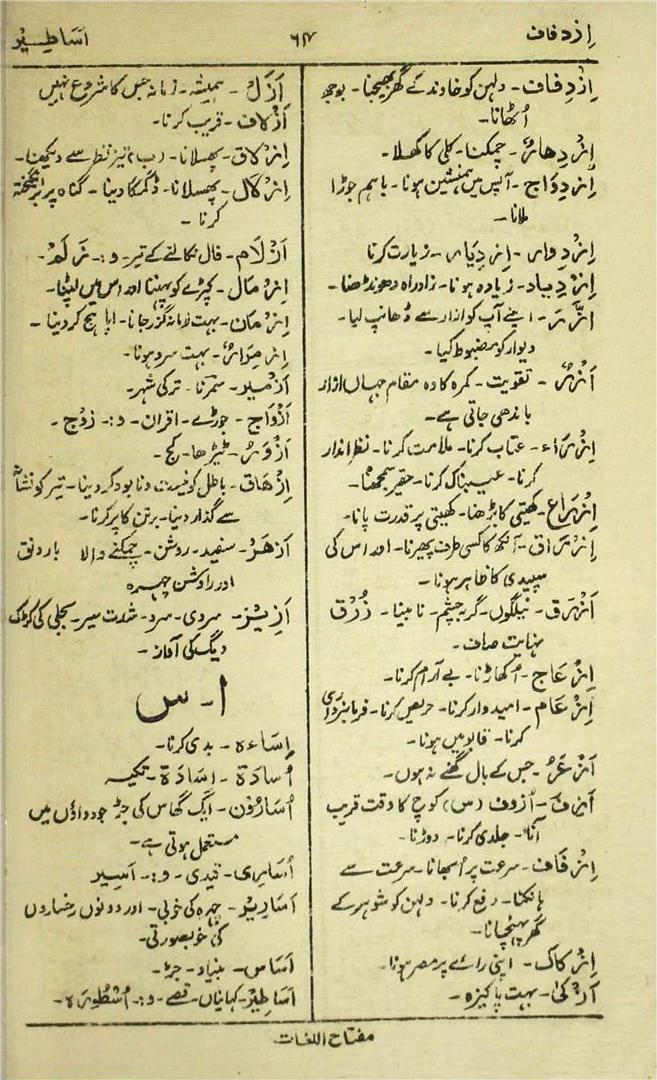 اِزدفاف ۶۴ اَسَاطِیْر
اِزْدِفاف - دلہن کو خاوند کے گھر بھیجنا - بوجھ
اُٹھانا -
اِزْدِهَارٌ - چمکنا - کلی کا کھلا -
اِزْدِوَاج - آپس میں ہمنشین ہونا - باہم جوڑا
ملانا -
اِزْدِوار - اِزْدِیَار - زیارت کرنا
اِزْدِیاد - زیادہ ہونا - زاد راہ ڈھونڈھنا -
اِزَّرَ - اپنے آپ کو ازار سے ڈھانپ لیا -
دیوار کو مضبوط کیا -
اَزْرٌ - تقویت - کمر کا وہ مقام جہاں ازار
باندھی جاتی ہے -
اِزْرَاء - عتاب کرنا - ملامت کرنا - نظر انداز
کرنا - عیبناک کرنا - حقیر سمجھنا -
اِزْرَاع - کھیتی کا بڑھنا - کھیتی پر قدرت پانا -
اِزْرَاق - آنکھ کا کسی طرف پھیرنا - اور اس کی
سپیدی کا ظاہر ہونا -
اَزْرَق - نیلگوں - گربہ چشم - نا بینا - زُرْق
نہایت صاف -
اِزْعَاج - اُکھاڑنا - بے آرام کرنا -
اِزْعَام - امیدوار کرنا - حریص کرنا - فرمانبرداری
کرنا - قابو میں ہونا -
اَزْعَرُ - جس کے بال گھنے نہ ہوں -
اَزِفَ - اُزوف (س) کوچ کا وقت قریب
آنا - جلدی کرنا - دوڑنا -
اِزْفَاف - سرعت پر اُبھانا - سرعت سے
ہانکنا - دفع کرنا - دلہن کو شوہر کے
گھر پہنچانا -
اِزْکاک - اپنی رائے پر مصر ہونا -
اَزْکیٰ - بہت پاکیزہ -
اَزَلْ - ہمیشہ - زمانہ جس کا شروع نہیں
اَزْلاف - قریب کرنا -
اِزْلاق - پھسلانا - (ب) تیز نظر سے دیکھنا -
اِزْلال - پھسلانا - ڈگمگا دینا - گناہ پر برانگیختہ
کرنا -
اَزْلَام - فال نکالنے کے تیر - و :- زَلَمْ -
اِزْمَال - کپڑے کو پہننا اور اس میں لپٹنا -
اِزْمَان - بہت زمانہ گزر جانا - اپاہج کر دینا -
بہت سرد ہونا -
اَزْمیر - سمرنا - ترکی شہر -
اَزْوَاج - جوڑے - اقران - و :- زَوْج -
اَزْوَرُ - ٹیڑھا - کج -
اِزْهَاق - باطل کو نیست و نابود کر دینا - تیر کو نشانہ
سے گذار دینا - برتن کا پر کرنا -
اَزْهَرُ - سفید - روشن - چمکنے والا بارونق
اور روشن چہرہ
اَزِیْز - سردی - سرد - شدت سیر - بجلی کی کڑک
دیگ کی آواز -
ا - س
اِسَاءَہ - بدی کرنا -
اُسَادَۃ - اِسَادَۃ - تکیہ
اَسَارُوْن - ایک گھاس کی جڑ جو دواؤں میں
مستعمل ہوتی ہے -
اُسَارٰی - قیدی - و :- اَسِیر
اَسَارِیْر - چہرہ کی خوبی - اور دونوں رخساروں
کی خوبصورتی -
اَسَاس - بنیاد - جڑ -
اَسَاطِیْر - کہانیاں - قصے - و :- اُسْطُوْرَہ -
مفتاح اللغات